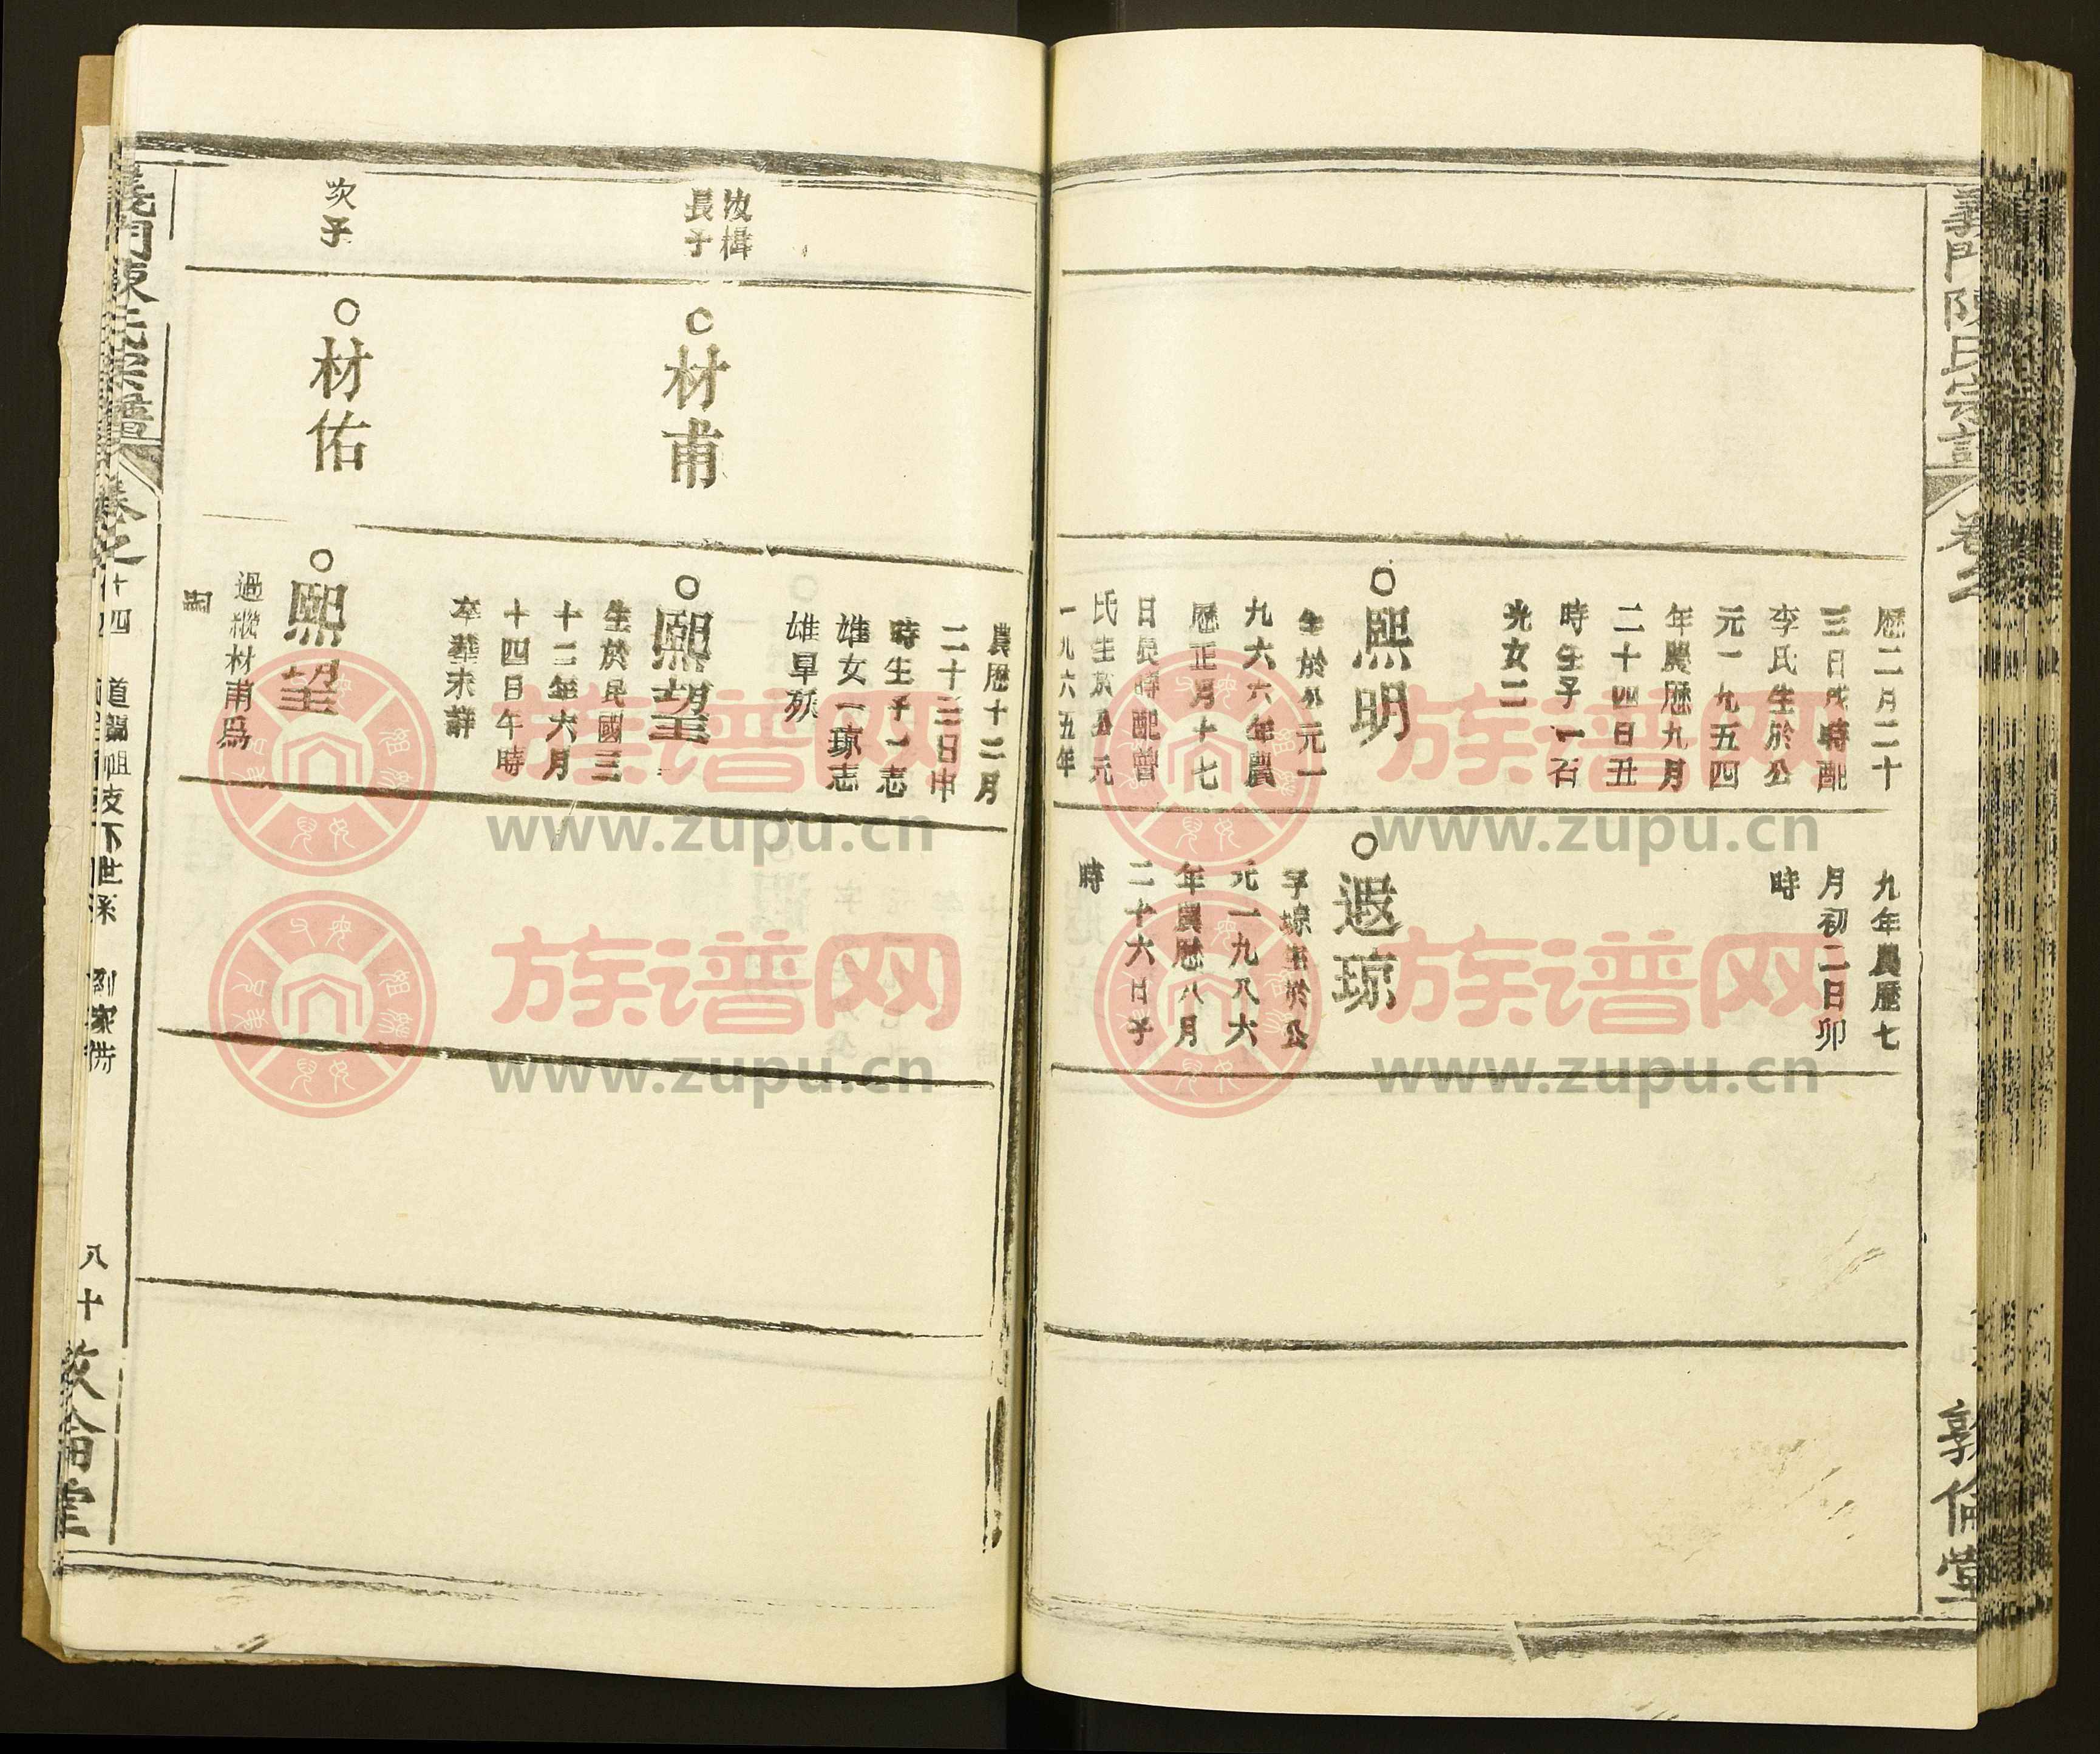 義門陳氏宗譜
卷之
敦倫堂
歷二月二十
三日戌時配
李氏生於公
元一九五四
年農歷九月
二十四日丑
時生子一石
光女二
熙明
生於公元一
九六六年農
歷正月十七
日辰時配曾
氏生於公元
一九六五年
九年農歷七
月初二日卯
時
遐琼
字琼生於公
元一九八六
年農歷八月
二十六日子
時
汝楫
長子
次子
材甫
材佑
農歷十二月
二十三日申
時生子一志
雄女一琼志
雄早殀
熙望
生於民國三
十二年六月
十四日午時
卒塟未詳
熙望
過繼材甫爲
嗣
義門陳氏宗譜
卷之十四
道蘭祖支下世系
八十
敦倫堂
族谱网
www.zupu.cn
族谱网
www.zupu.cn
族谱网
www.zupu.cn
族谱网
www.zupu.cn